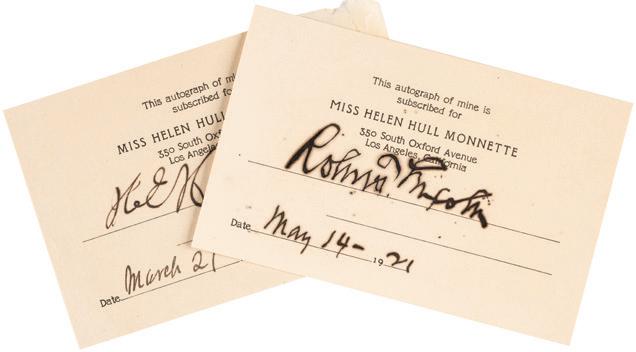 This autograph of mine
subscribed for
MISS HELEN HULL
350 South
Los Angeles,
Date March
This autograph of mine is
subscribed for
MISS HELEN HULL MONNETTE
350 South Oxford Avenue
Los Angeles, California
Robert T. Lincoln
Date May 14- 1921